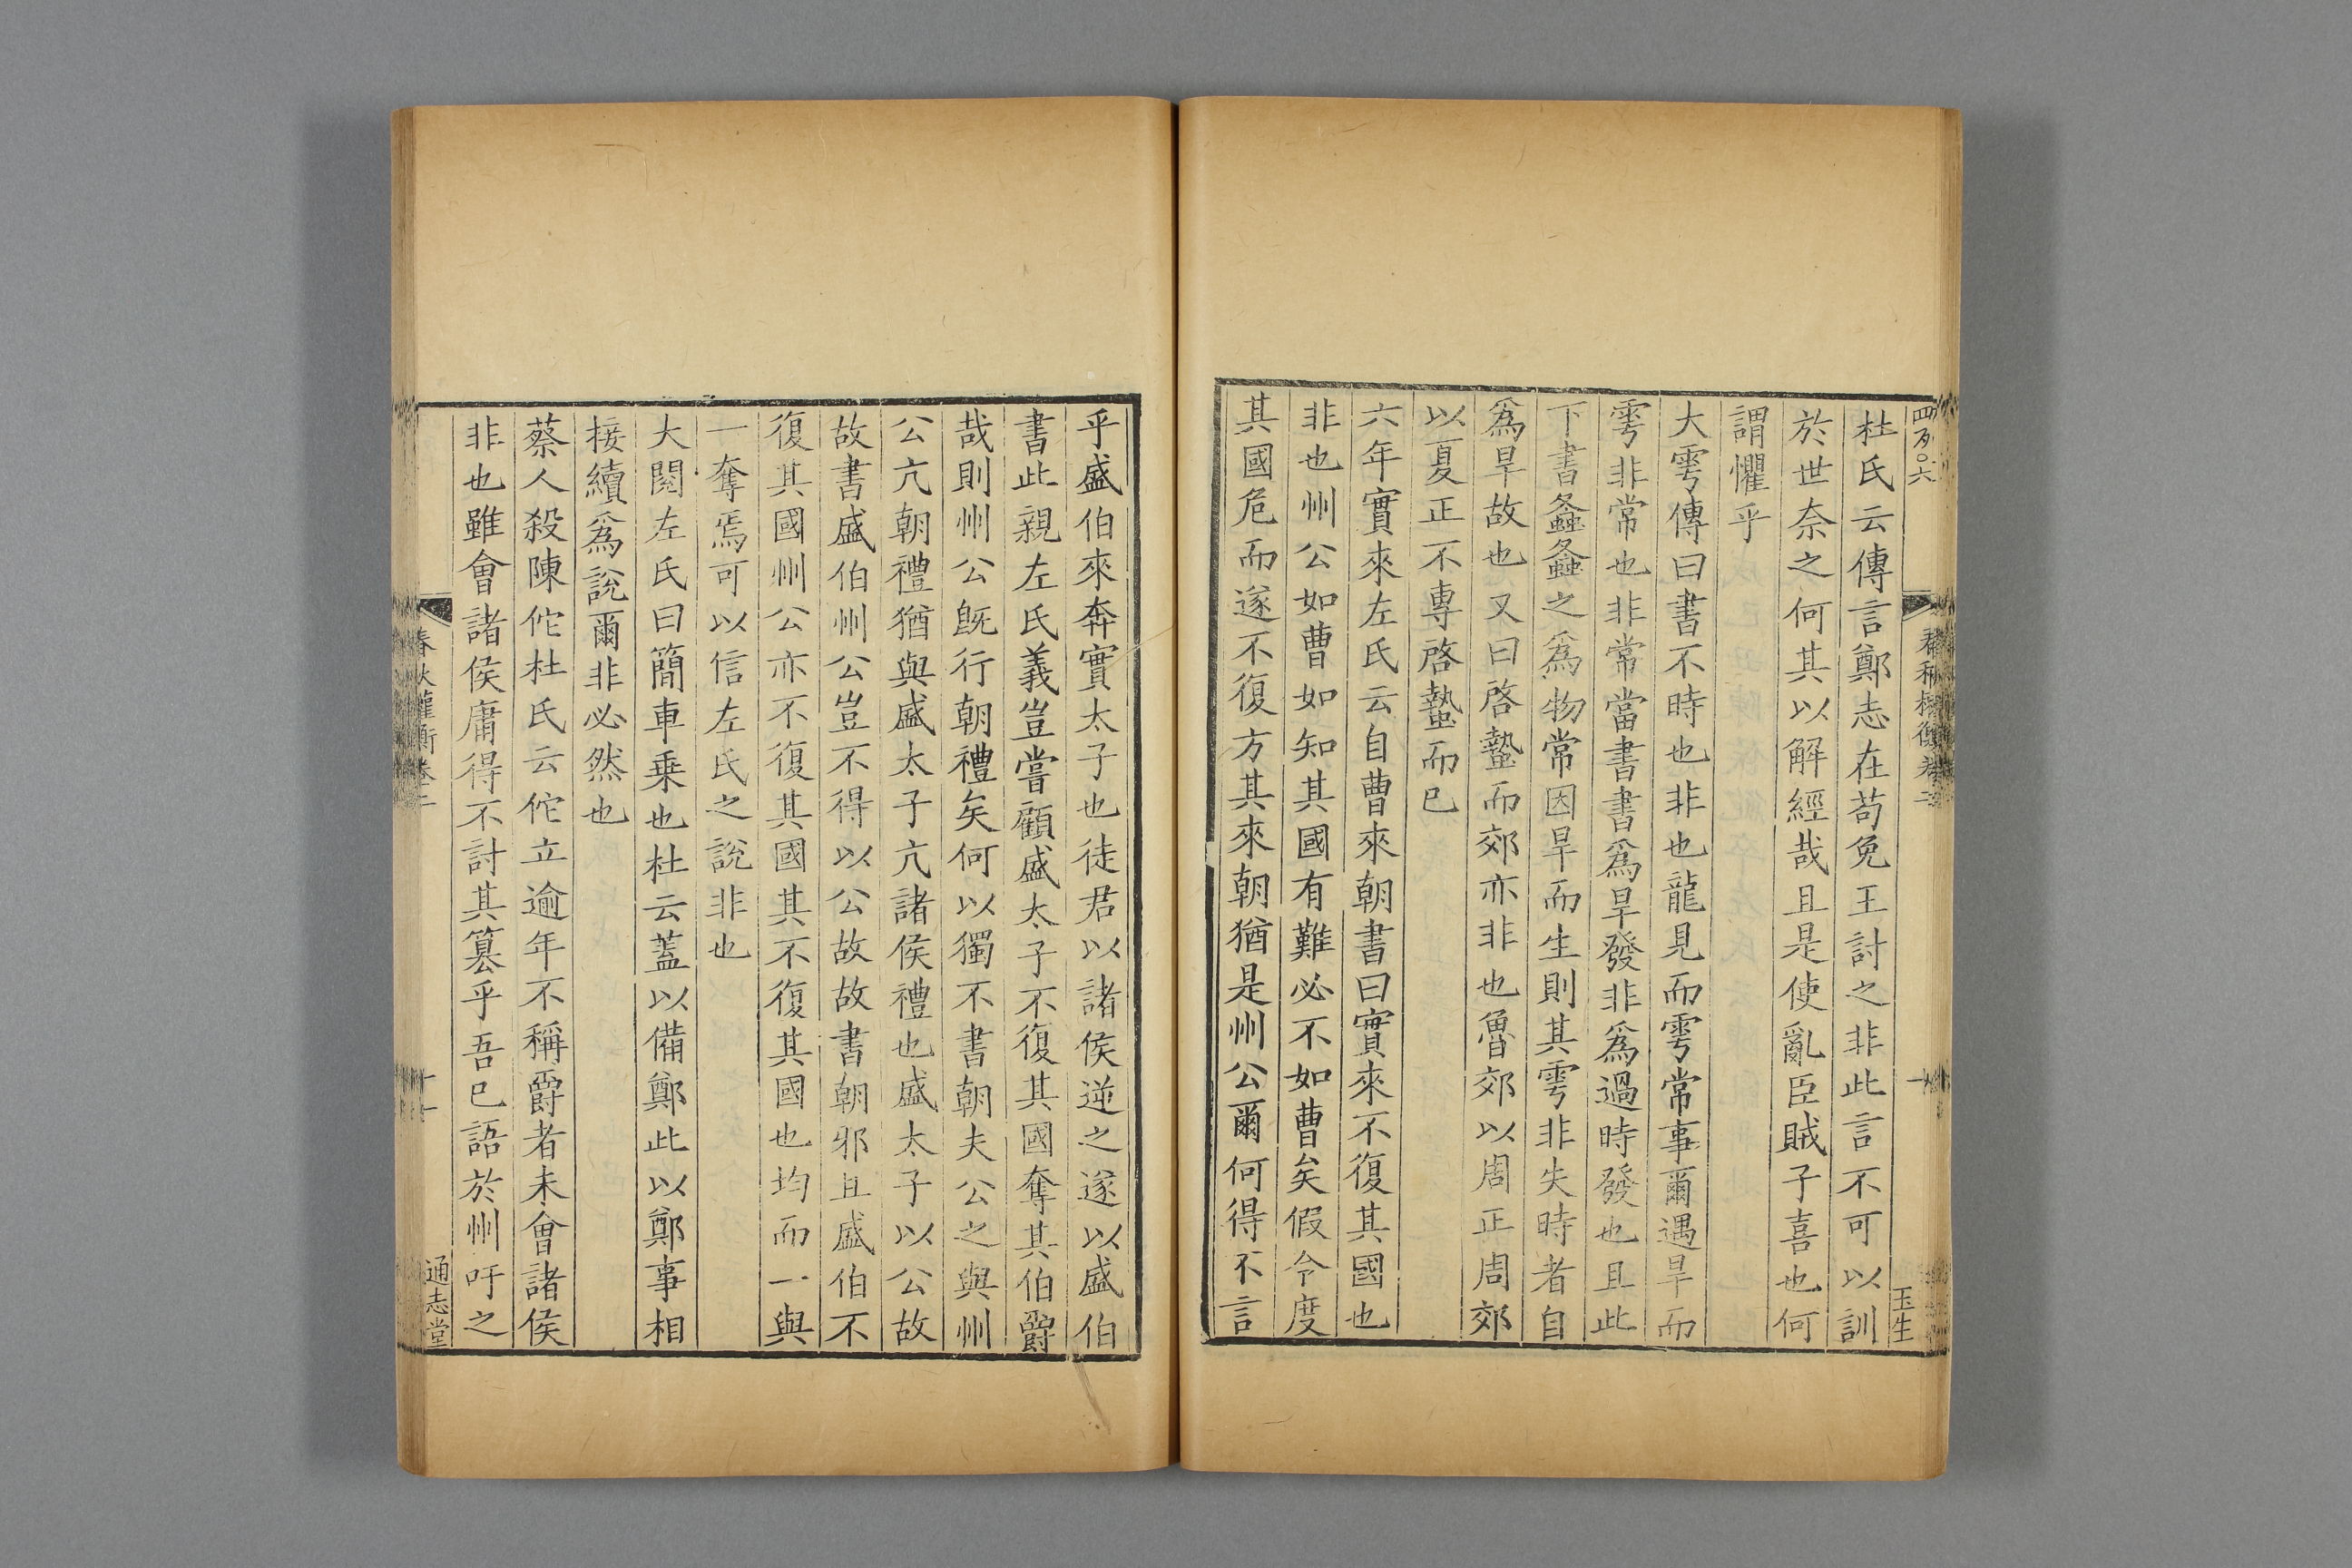 四百〇六
春秋權衡卷二
十
玉生
杜氏云傳言鄭志在苟免王討之非此言不可以訓
於世奈之何其以解經哉且是使亂臣賊子喜也何
謂懼乎
大雩傳曰書不時也非也龍見而雩常事爾遇旱而
雩非常也非常當書書爲旱發非爲過時發也且此
下書螽螽之爲物常因旱而生則其雩非失時者自
爲旱故也又曰啓蟄而郊亦非也魯郊以周正周郊
以夏正不專啓蟄而已
六年實來左氏云自曹來朝書曰實來不復其國也
非也州公如曹如知其國有難必不如曹矣假令度
其國危而遂不復方其來朝猶是州公爾何得不言
乎盛伯來奔實太子也徒君以諸侯逆之遂以盛伯
書此親左氏義豈嘗顧盛太子不復其國奪其伯爵
哉則州公旣行朝禮矣何以獨不書朝夫公之與州
公亢朝禮猶與盛太子亢諸侯禮也盛太子以公故
故書盛伯州公豈不得以公故故書朝邪且盛伯不
復其國州公亦不復其國其不復其國也均而一與
一奪焉可以信左氏之說非也
大閱左氏曰簡車乗也杜云蓋以備鄭此以鄭事相
接續爲說爾非必然也
蔡人殺陳佗杜氏云佗立逾年不稱爵者未會諸侯
非也雖會諸侯庸得不討其篡乎吾已語於州吁之
春秋權衡卷二
十一
通志堂